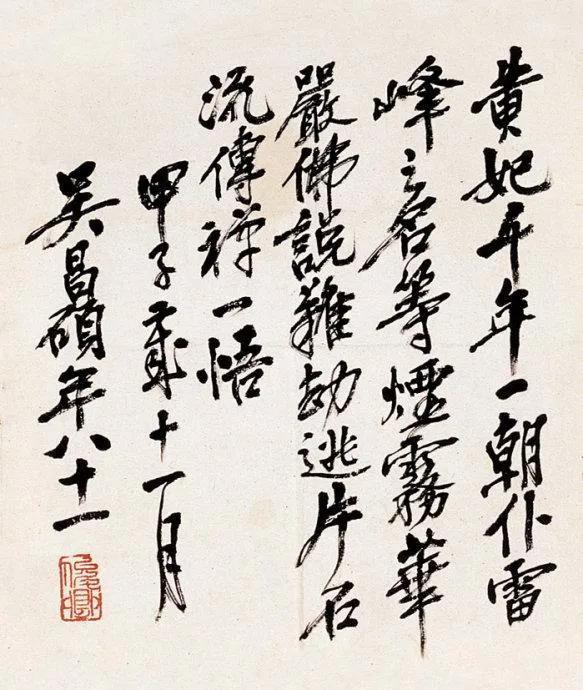 黄妃千年一朝仆雷
峰之名等煙霧華
嚴佛說難劫逃片石
流傳禪一悟
甲子歲十一月
吳昌碩年八十一